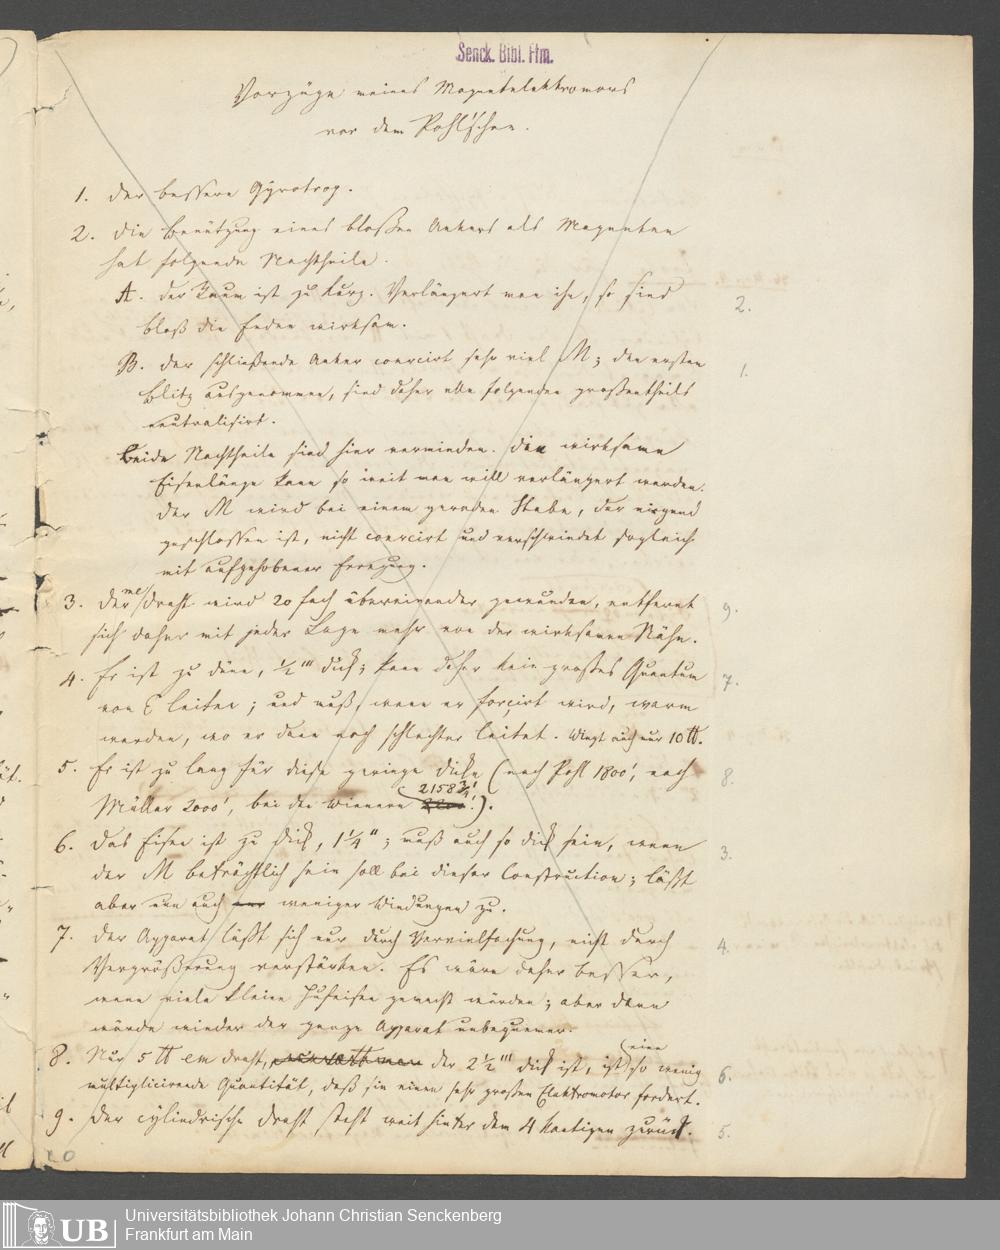 Senck. Bibl. Ffm.
Vorzüge meines Magnetelektromors
vor dem Pohl'schen.
1. Der bessere Gyrotrop.
2. Die Benützung eines bloßen Ankers als Magneten
hat folgende Nachtheile.
A. Der Raum ist zu kurz. Verlängert man ihn, so sind
bloß die Enden wirksam.
2.
B. Der schließende Anker coercirt sehr viel M; den ersten
1.
Blitz ausgenommen, sind daher alle folgenden großentheils
neutralisirt.
Beide Nachtheile sind hier vermieden. Die wirksame
Eisenlänge kann so weit man will verlängert werden.
Der M wird bei einem geraden Stabe, der nirgend
geschlossen ist, nicht coercirt und verschwindet sogleich
mit aufgehobener Erregung.
3. Der me/draht wird 20 fach übereinander gewunden, entfernt
9.
sich daher mit jeder Lage mehr von der wirksamen Nähe.
4. Er ist zu dünn, ½''' dick; kann daher kein großes Quantum
7.
von E leiten; und muß, wenn er forcirt wird, warm
werden, wo er dann noch schlechter leitet. Wiegt auch nur 10 ℔.
5. Er ist zu lang für diese geringe Dicke (nach Pohl 1800', nach
8.
Müller 2000', bei den Wienern (2158¾'!).
6. Das Eisen ist zu dick, 1¼"; muß auch so dick sein, wenn
3.
der M beträchtlich sein soll bei dieser Construction; läßt
aber nun auch nur weniger Windungen zu.
7. Der Apparat läßt sich nur durch Vervielfachung, nicht durch
4.
Vergrößerung verstärken. Es wäre daher besser,
wenn viele kleine Hufeisen gemacht würden; aber dann
würde wieder der ganze Apparat unbequemer.
8. Nur 5 ℔ em draht, der 2½''' dick ist, ist (eine) so wenig
6.
multiplicirende Quantität, daß sie einen sehr großen Elektromotor fordert.
9. Der cylindrische Draht steht weit hinter dem 4 kantigen zurück.
5.
UB
Universitätsbibliothek Johann Christian Senckenberg
Frankfurt am Main